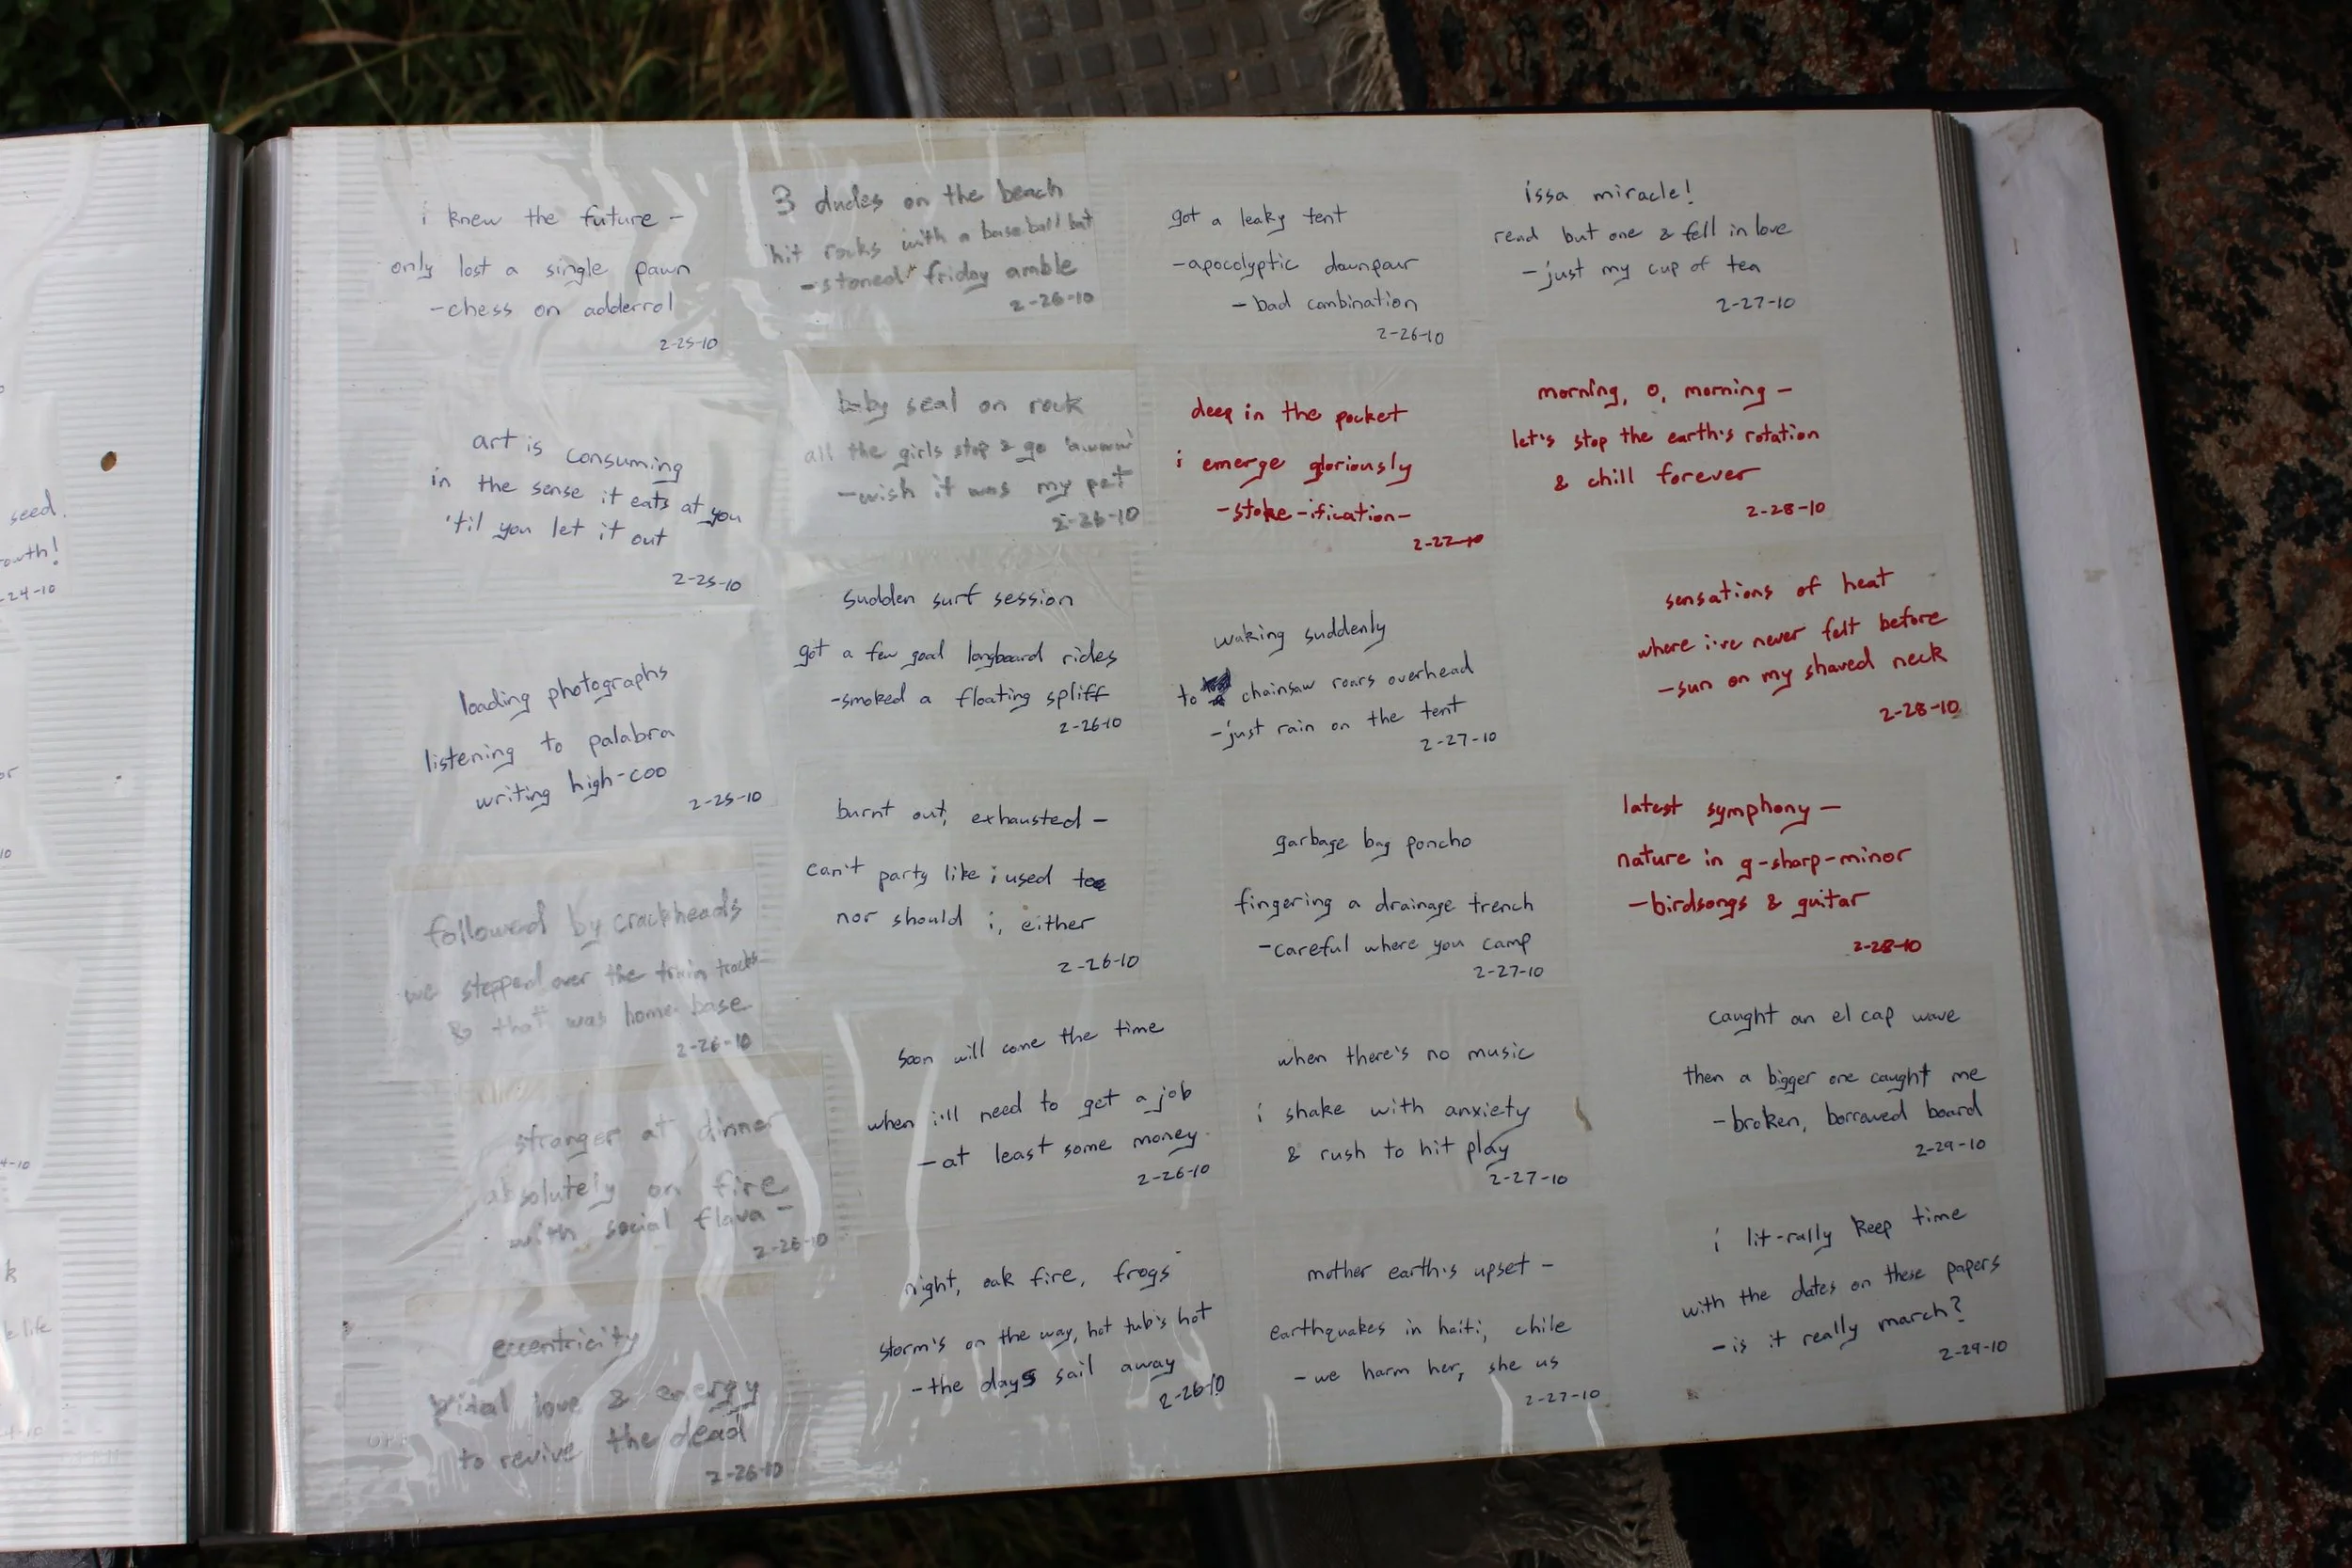 seed.
outh!
-24-10
or
10
4-10
k
life
i knew the future –
only lost a single pawn
-chess on adderrol
2-25-10
art is consuming
in the sense it eats at you
'til you let it out
2-25-10
loading photographs
listening to palabra
writing high-coo
2-25-10
followed by crackheads
we stepped over the train tracks
& that was home base
2-26-10
stranger at dinner
absolutely on fire
with social flava –
2-26-10
eccentricity
love & energy
to revive the dead
2-26-10
3 dudes on the beach
hit rocks with a baseball bat
-stoned friday amble
2-26-10
baby seal on rock
all the girls stop & go
-wish it was my pet
2-26-10
sudden surf session
got a few good longboard rides
-smoked a floating spliff
2-26-10
burnt out, exhausted –
can't party like i used to
nor should i, either
2-26-10
soon will come the time
when i'll need to get a job
-at least some money
2-26-10
night, oak fire, frogs
storm's on the way, hot tub's hot
-the days sail away
2-26-10
got a leaky tent
-apocolyptic downpour
-bad combination
2-26-10
deep in the pocket
i emerge gloriously
-stoke-ification-
2-27-10
waking suddenly
to chainsaw roars overhead
-just rain on the tent
2-27-10
garbage bag poncho
fingering a drainage trench
-careful where you camp
2-27-10
when there's no music
i shake with anxiety
& rush to hit play
2-27-10
mother earth's upset –
earthquakes in haiti, chile
-we harm her, she us
2-27-10
issa miracle!
read but one & fell in love
-just my cup of tea
2-27-10
morning, o, morning –
let's stop the earth's rotation
& chill forever
2-28-10
sensations of heat
where i've never felt before
-sun on my shaved neck
2-28-10
latest symphony –
nature in g-sharp-minor
-birdsongs & guitar
2-28-10
caught an el cap wave
then a bigger one caught me
-broken, borrowed board
2-29-10
i lit-rally keep time
with the dates on these papers
-is it really march?
2-29-10